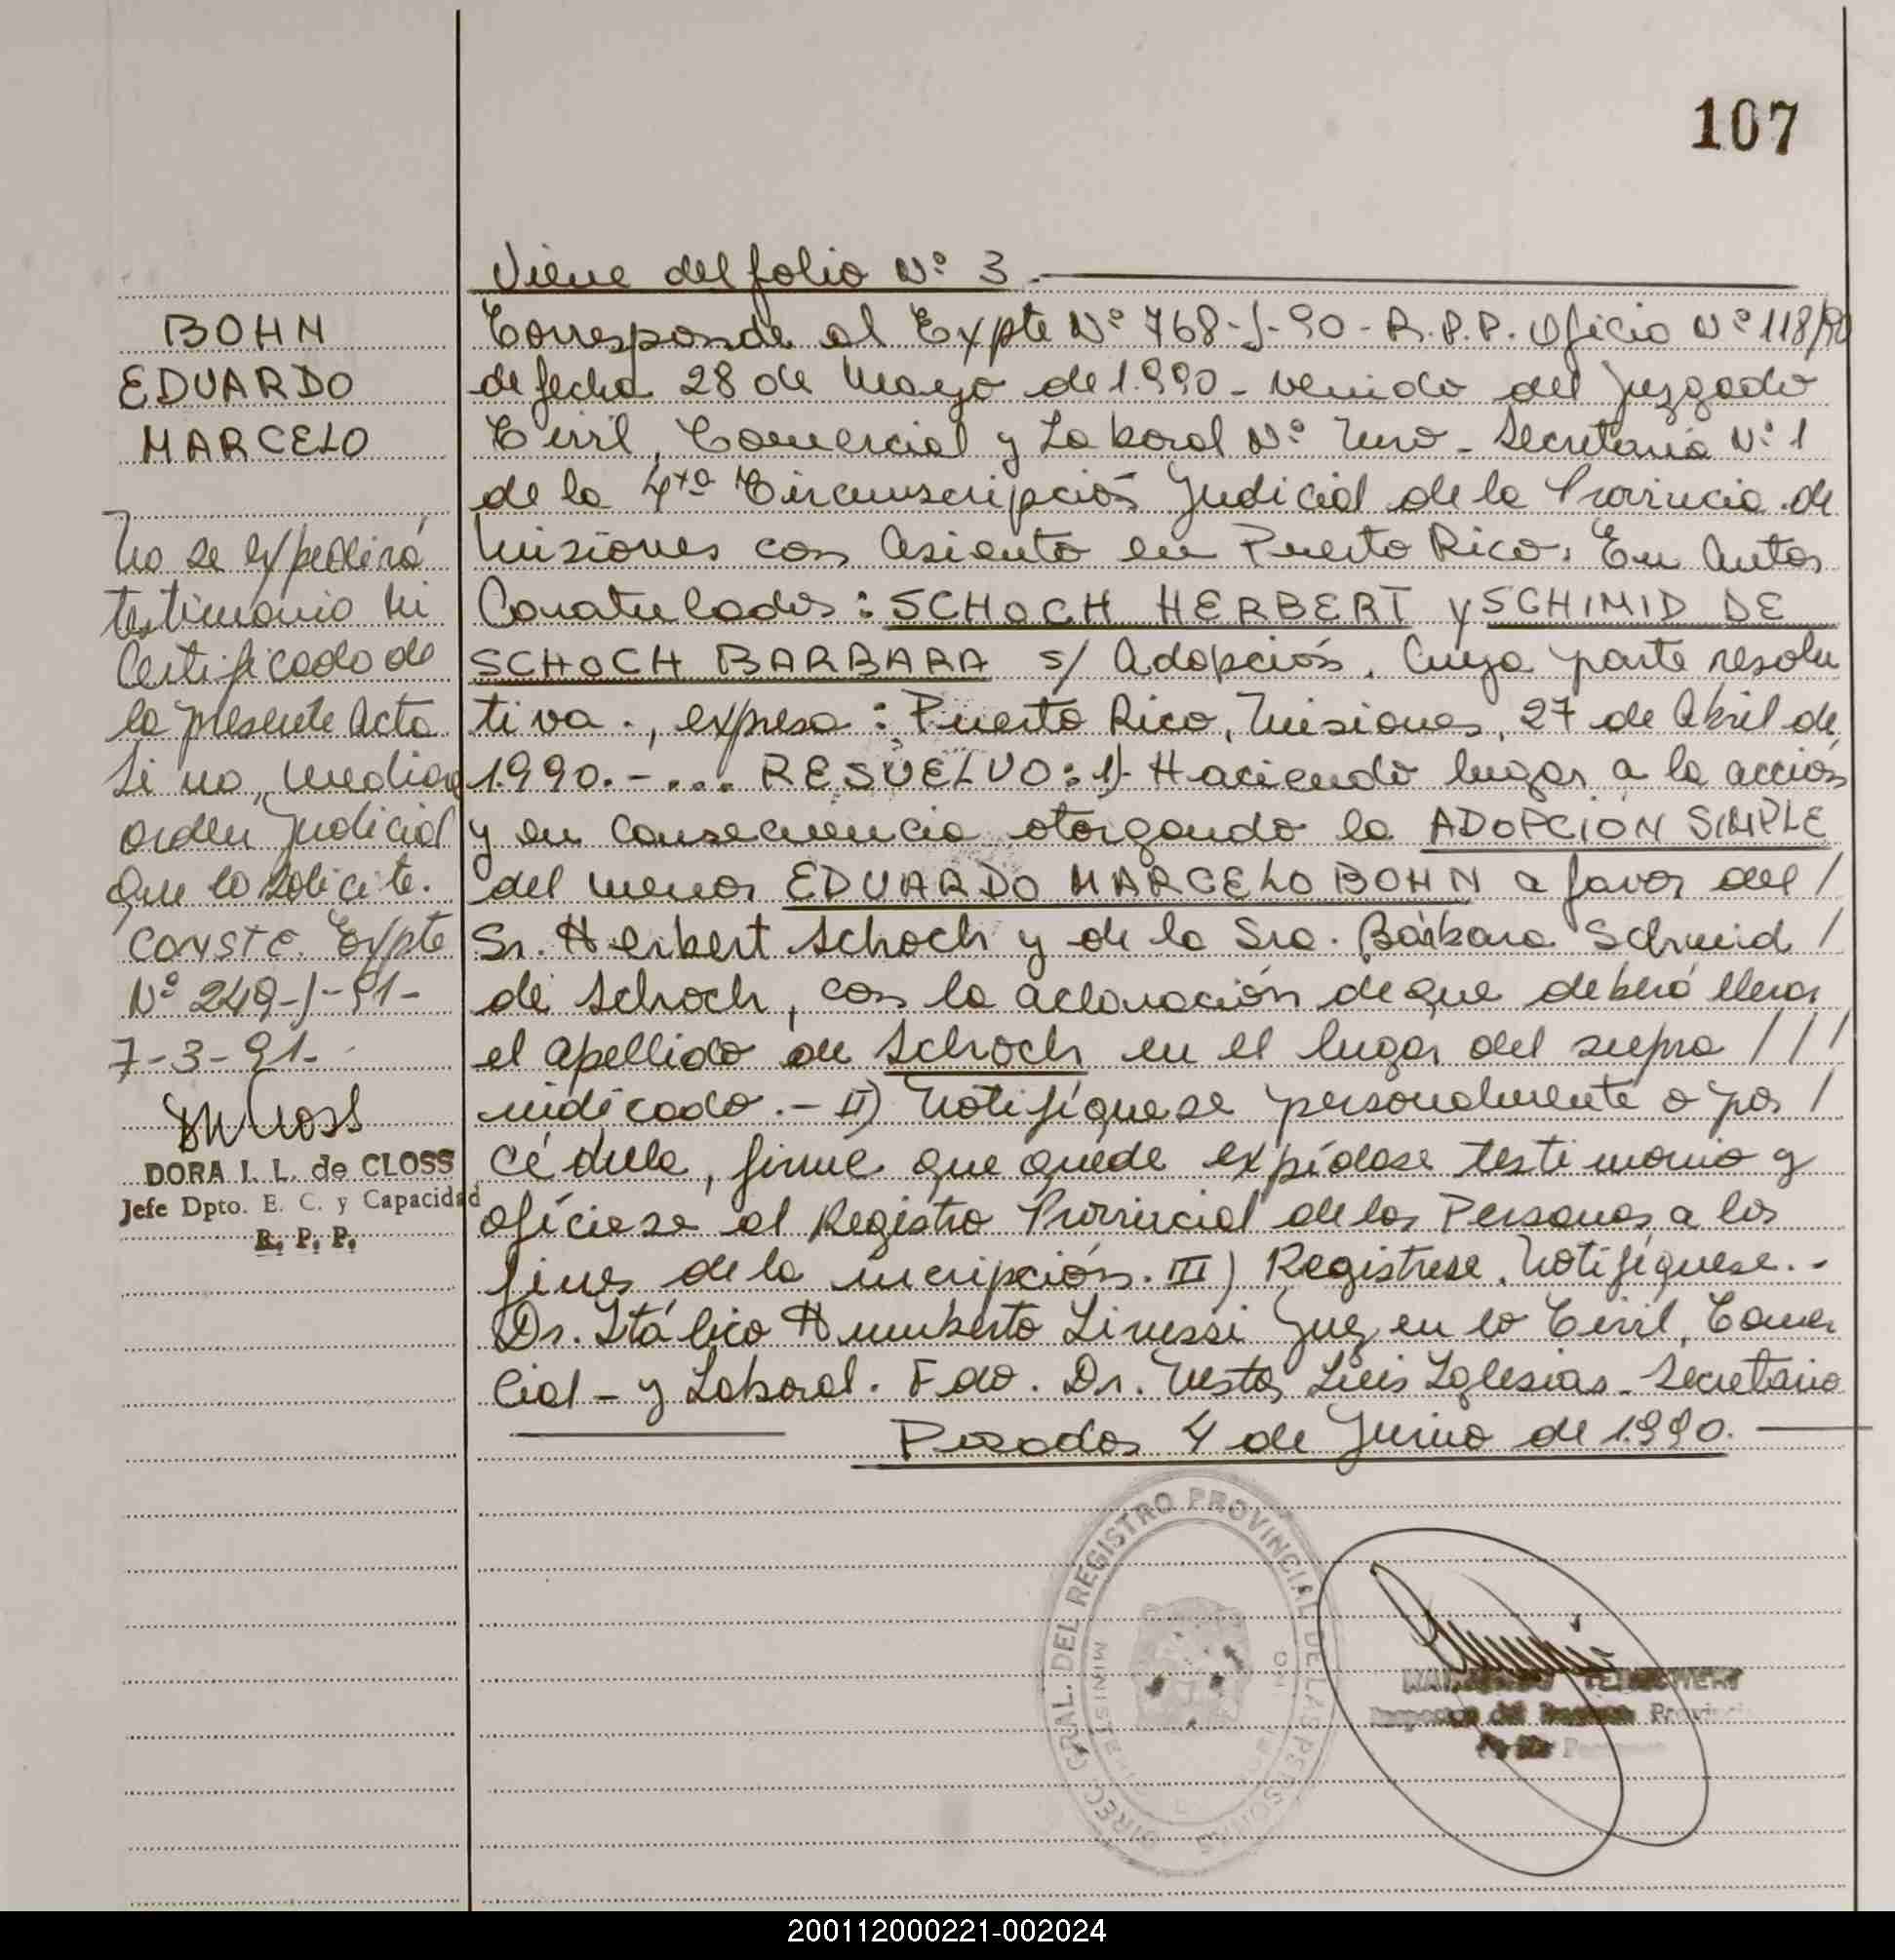 107
Viene del folio Nº 3.
BOHN
EDUARDO
MARCELO
No se expedirá
testimonio ni
Certificado de
la presente Acta
Si no, media
orden Judicial
que lo solicite.
CONSTE. Expte
Nº 249-J-91-
7-3-91-
DORA I. L. de CLOSS
Jefe Dpto. E. C. y Capacidad
R. P. P.
Corresponde al Expte Nº 768-J-90- R.P.P. Oficio Nº 118/90
de fecha 28 de Mayo de 1.990 - venido del Juzgado
Civil, Comercial y Laboral Nº Uno - Secretaria Nº 1
de la 4ta Circunscripción Judicial de la Provincia de
Misiones con Asiento en Puerto Rico. En Autos
Caratulados: SCHOCH HERBERT y SCHIMID DE
SCHOCH BARBARA s/ Adopción. Cuya parte resolu
tiva., expresa: Puerto Rico, Misiones, 27 de Abril de
1.990.-... RESUELVO: 1)- Haciendo lugar a la acción
y en consecuencia otorgando la ADOPCIÓN SIMPLE
del menor EDUARDO MARCELO BOHN a favor del /
Sr. Herbert Schoch y de la Sra. Bárbara Schmid /
de Schoch, con la aclaración de que deberá llevar
el apellido de Schoch en el lugar del supra ///
indicado.- II) Notifíquese personalmente o por /
Cédula, firme que quede expídase testimonio y
ofíciese al Registro Provincial de las Personas a los
fines de la incripción. III) Registrese. Notifíquese.-
Dr. Itálico Humberto Juez en lo Civil, Comer
cial - y Laboral. Fdo. Dr. Luis Iglesias - Secretario
Posadas 4 de Junio de 1.990.
DIREC. GRAL. DEL REGISTRO PROVINCIAL DE LAS PERSONAS
200112000221-002024